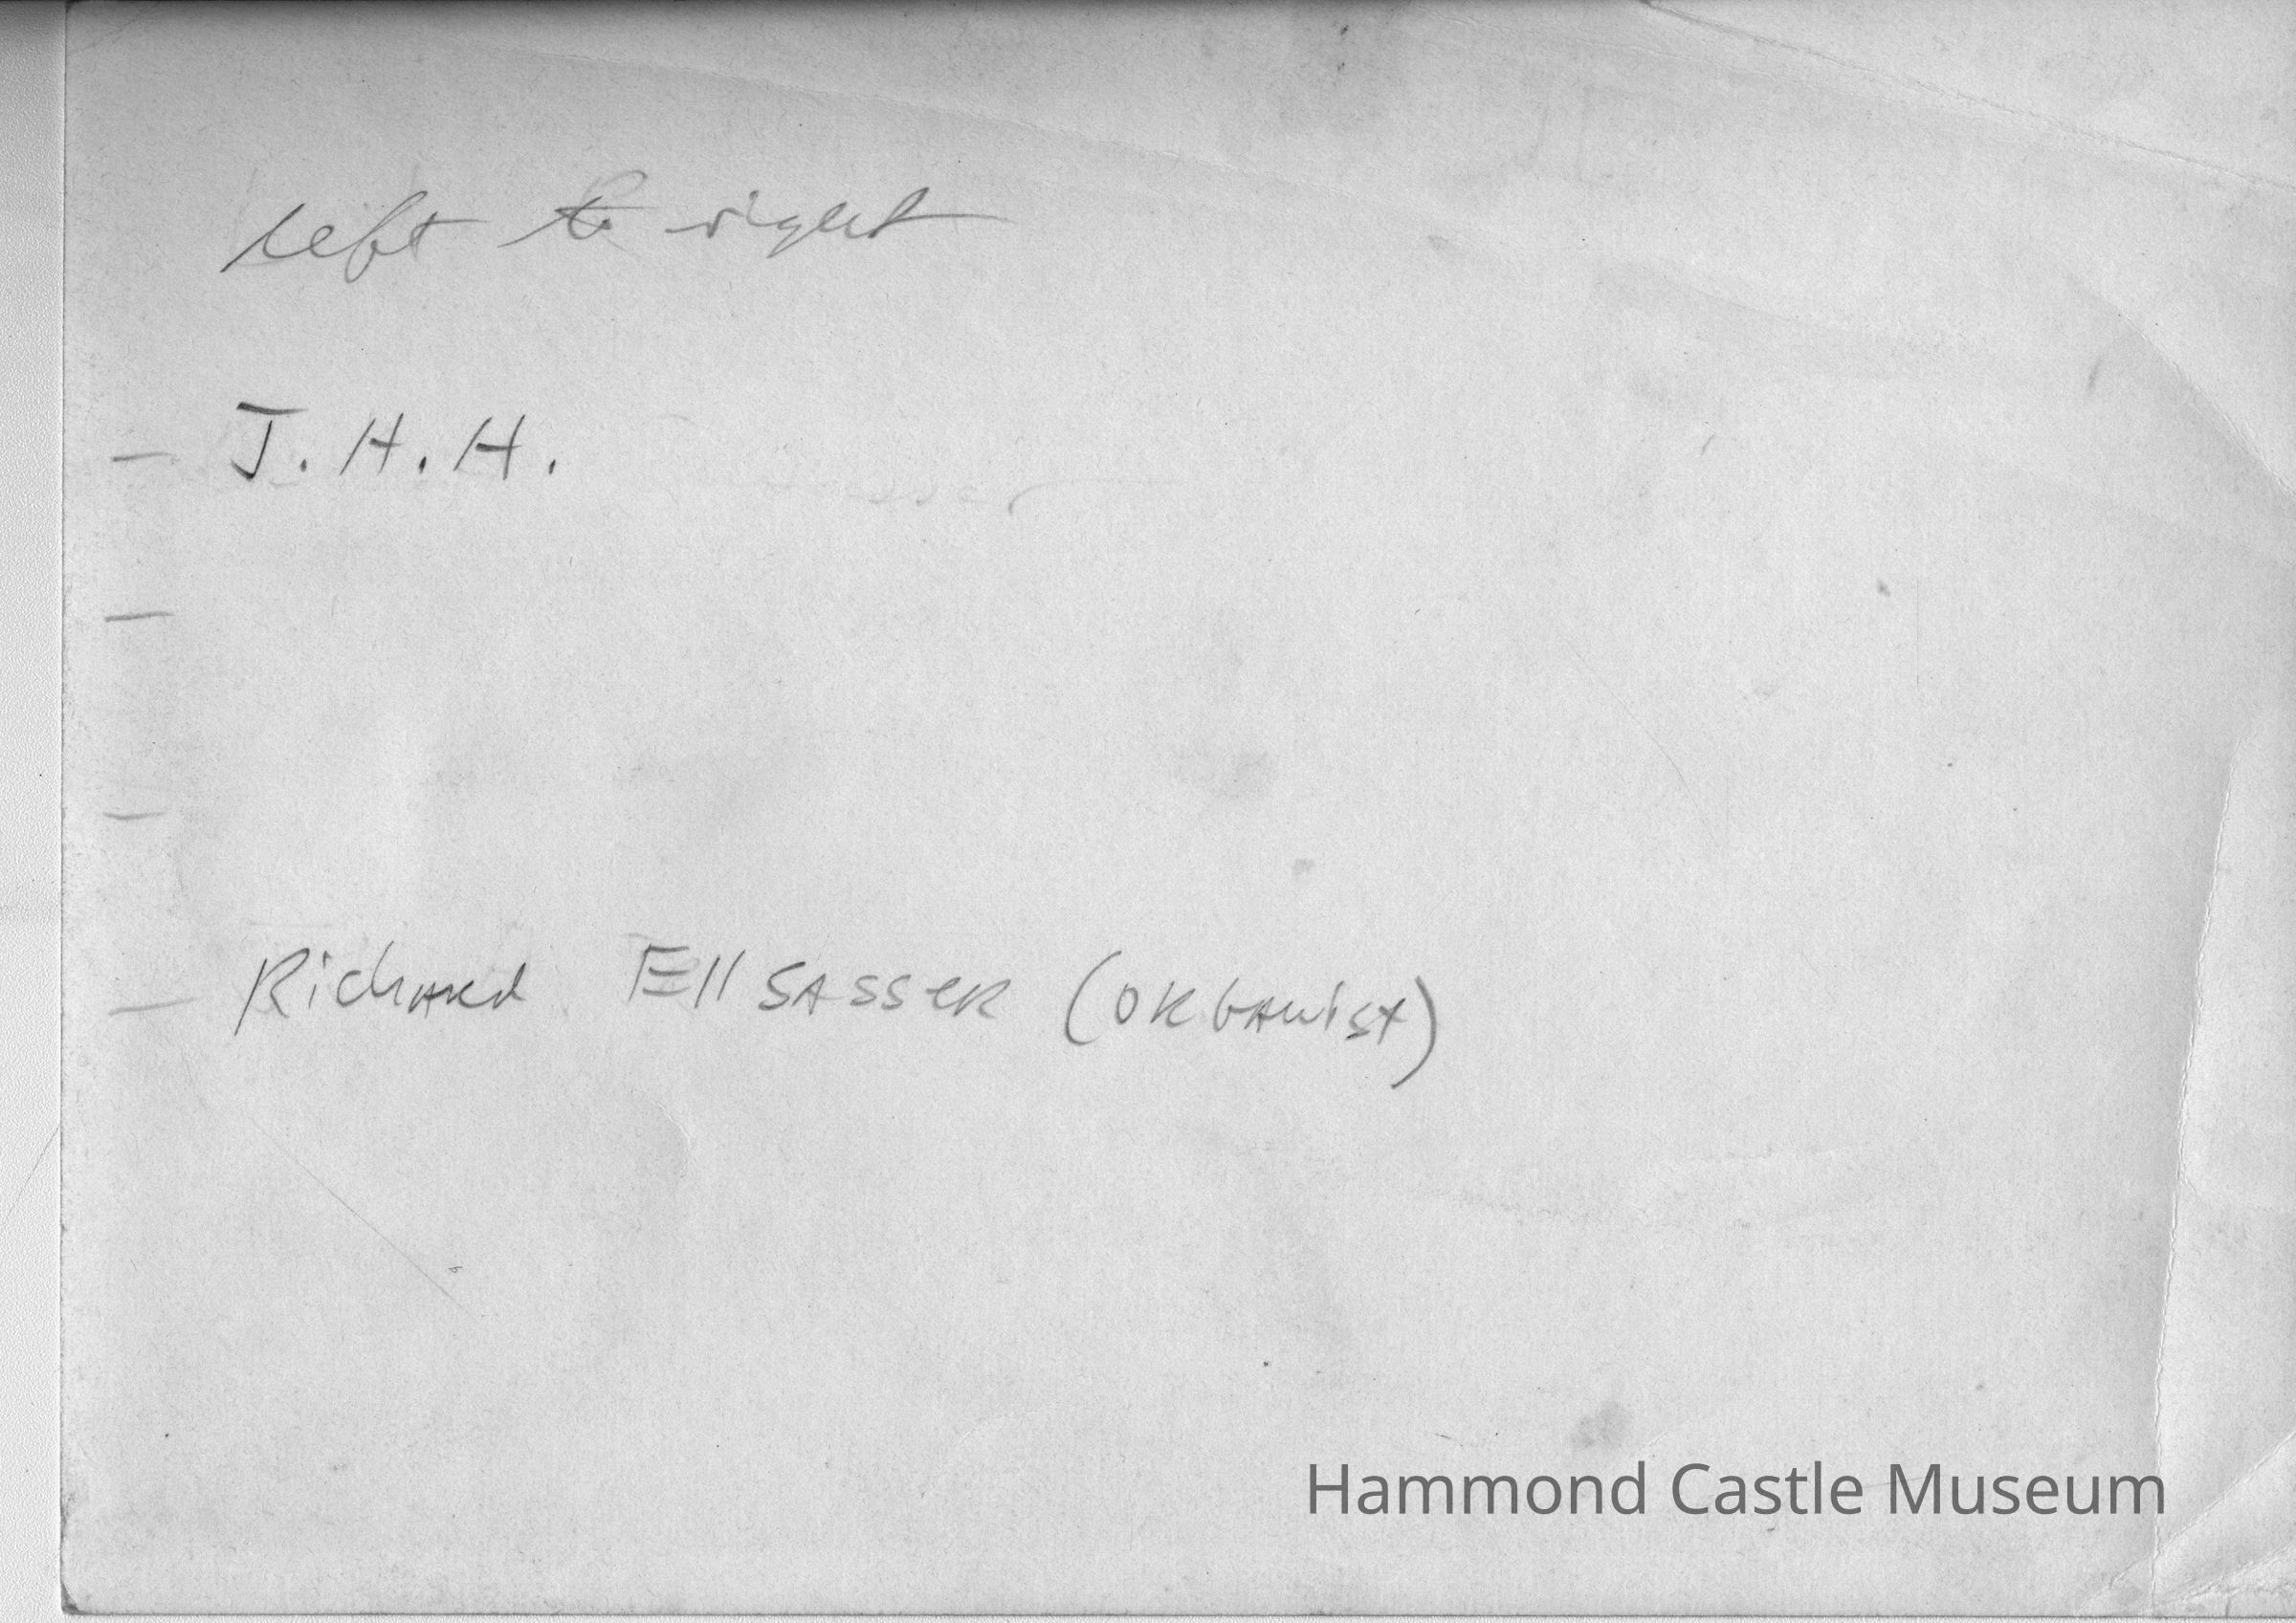 left to right
– J.H.H.
–
–
– Richard Ellsasser (organist)
Hammond Castle Museum